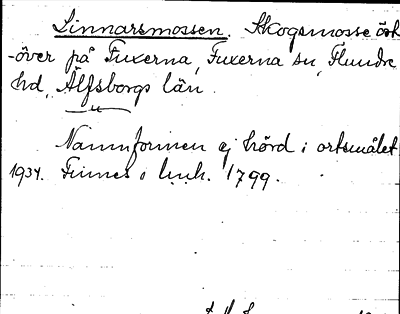 Linnarsmossen. Skogsmosse öst
-över på Fuxerna, Fuxerna sn, Flundre
hd, Älfsborgs län.
Namnformen ej hörd i ortsmålet
1934. Finnes i l.u.h. 1799.